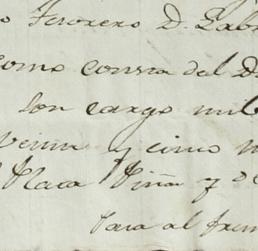 Tesorero D. Pab
como consta del D
son cargo mil
Veinti y cinco m
Plaza Viña y d
Para al fren